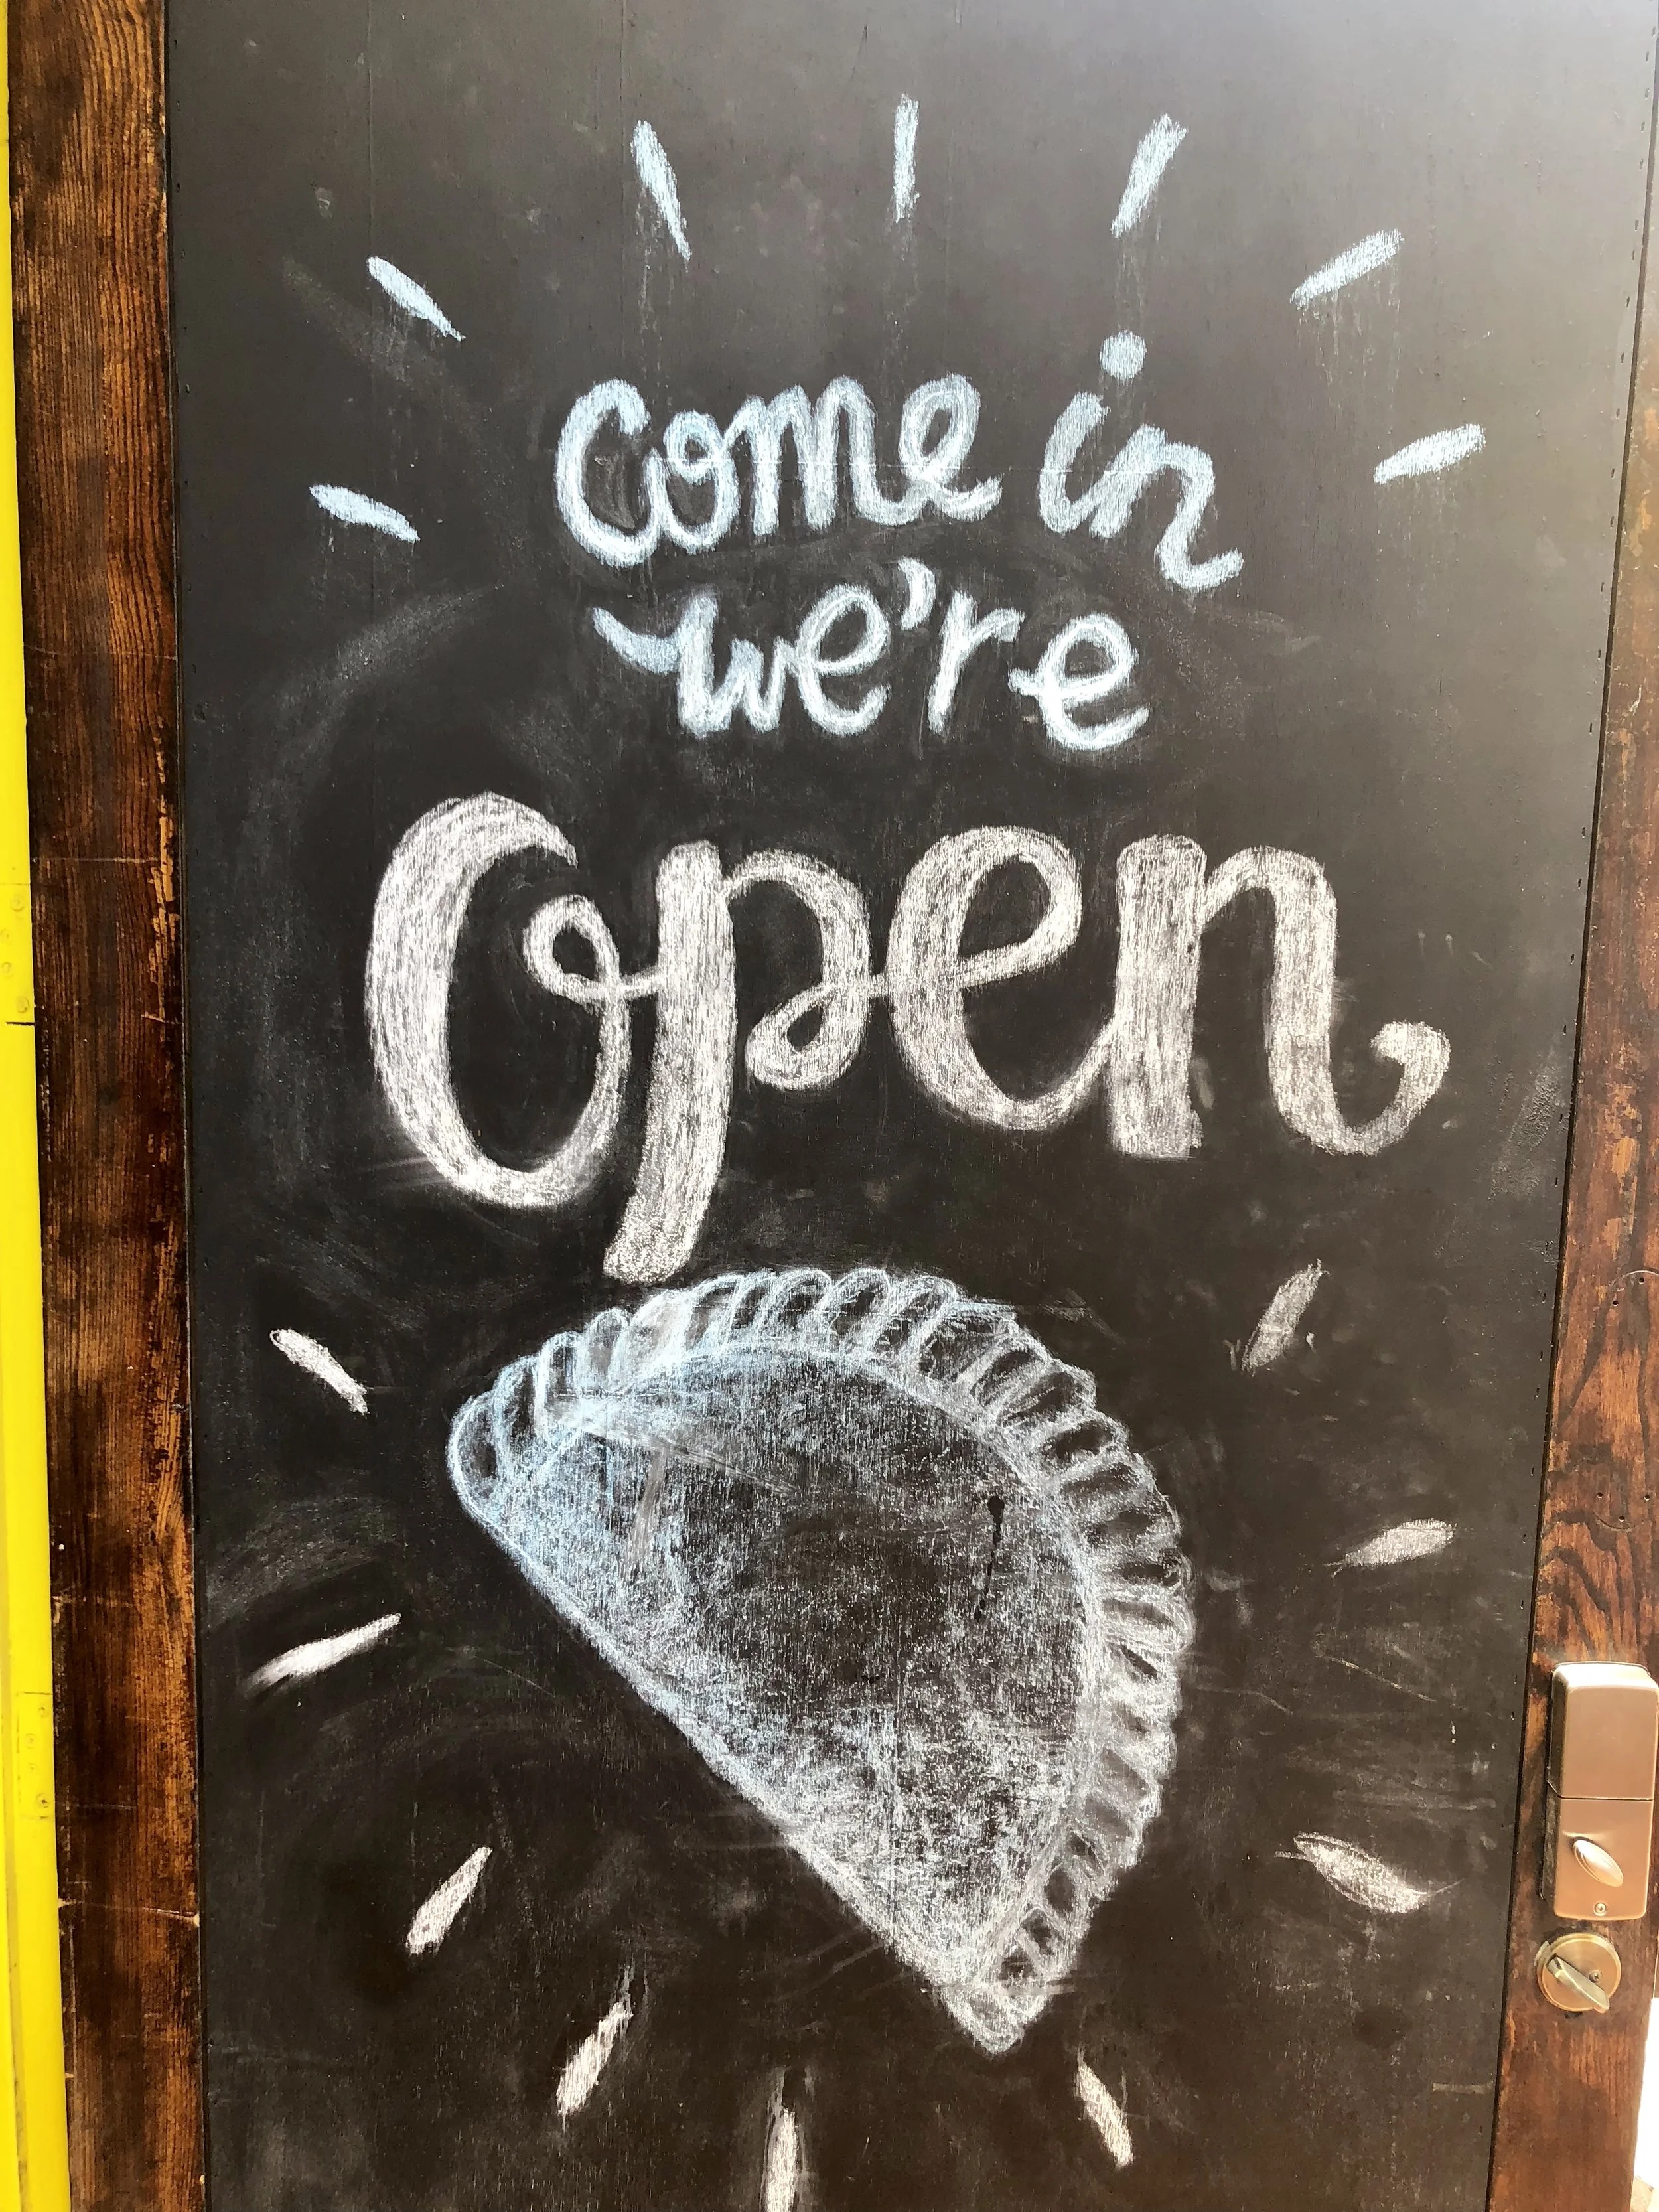 come in
we're
Open